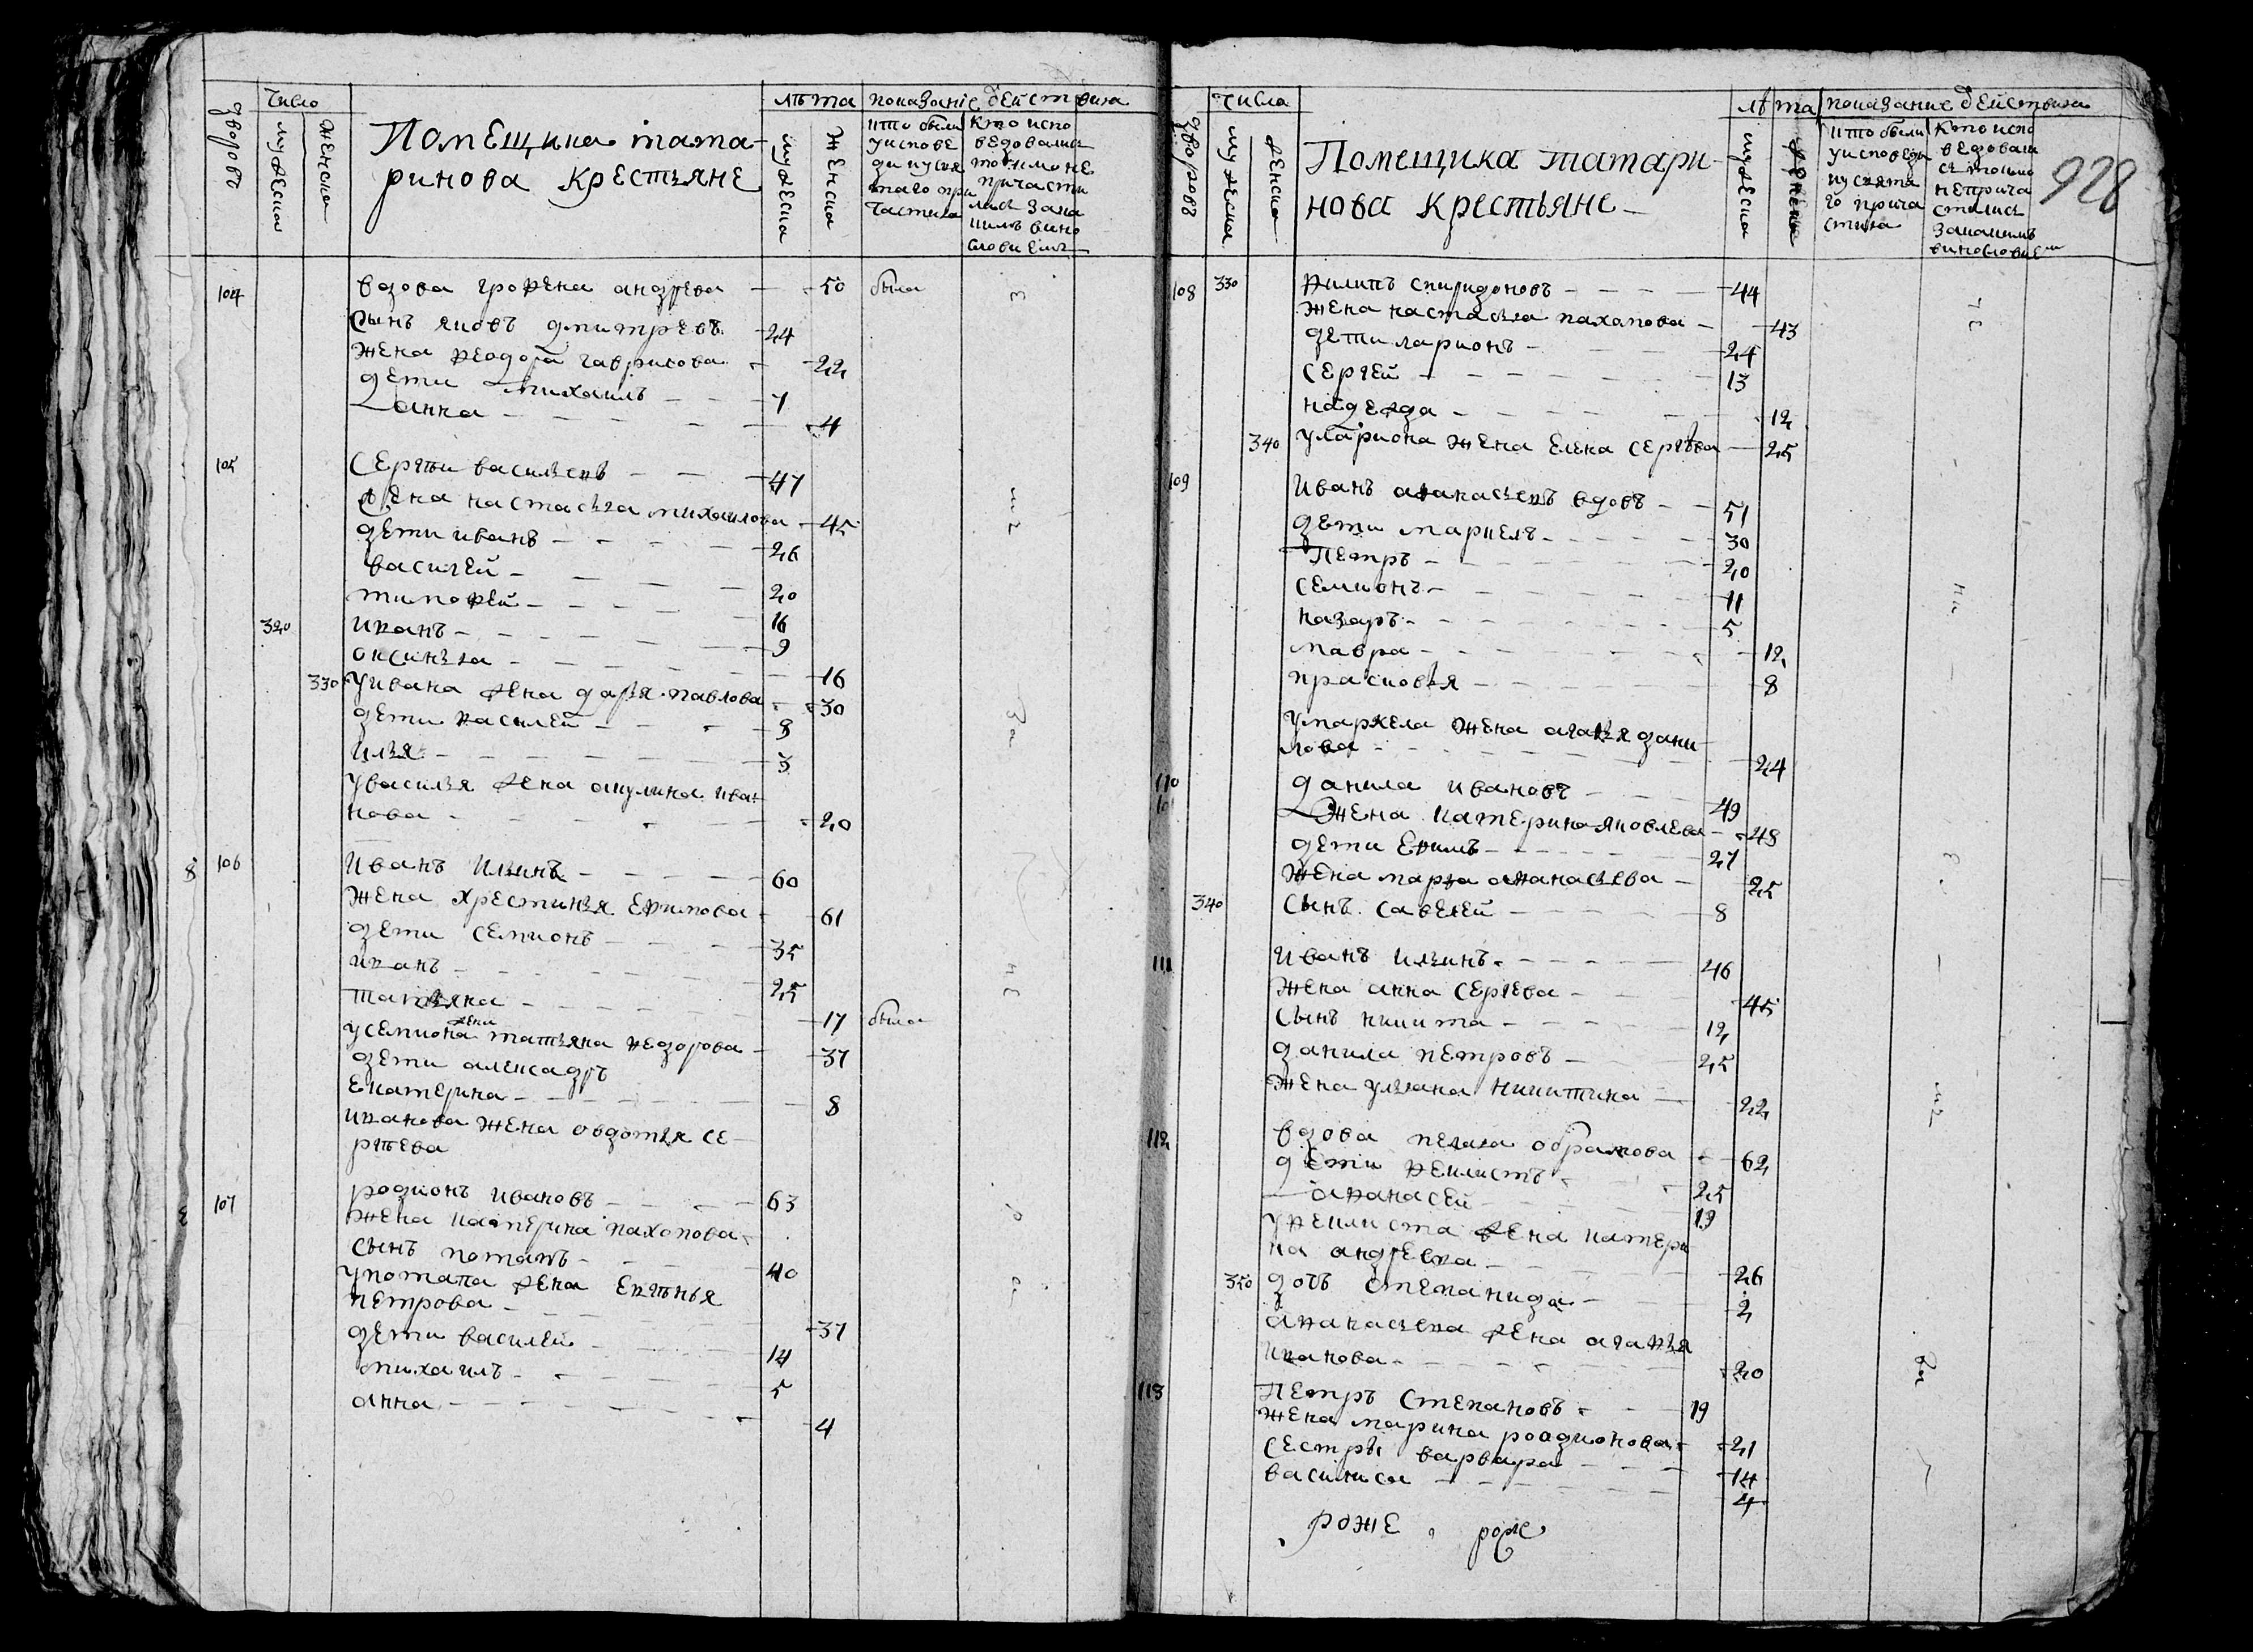 дворовъ
Число
мужеска
женска
Помещика тата-
ринова крестьяне
лѣта
мужеска
женска
показание действина
кто были
у испове
ди и у свя
таго при
частия
кто испо
ведовалис
токмо не
причасти
лись за ка
кимъ вино
словиемъ
104 вдова грофена андрева — 50 была
сынъ яковъ дмитревъ 24
жена феодора гаврилова — 22
дети михаилъ — 1
анна — 4
105 сергѣи васильевъ — 47
жена настасья михаилова — 45
дети иванъ — 26
василей — 20
тимофей — 16
320 иванъ — 9
оксинья — 16
330 у ивана жена дарья павлова — 30
дети василей — 8
илья — 3
у василья жена акулина ива
нова — 20
8 106 иванъ ильинъ — 60
жена хрестинья ефимова — 61
дети семионъ — 35
иванъ — 25
татьяна — 17 была
жена
у семиона татьяна федорова — 37
дети алексадръ
екатерина — 8
иванова жена овдотья се-
ргѣева
107 родионъ ивановъ — 63
жена катерина пахомова
сынъ потапъ — 40
у потапа жена
петрова — 37
дети василей — 14
михаилъ — 5
анна — 4
дворовъ
числа
мужеска
женска
Помещика татари-
нова крестьяне —
лѣта
мужеска
женска
показание действина
928
кто были
у исповеди
и у свята
го прича
стия
кто испо
ведовали
сь токмо
не прича
стились
за какимъ
винословием
108 330 филипъ спиридоновъ — 44
жена настасья пахомова — 43
дети ларионъ — 24
сергей — 13
надежда — 12
340 у лариона жена елена сергѣва — 25
109 иванъ афанасьевъ вдовъ — 51
дети маркелъ — 30
петръ — 20
семионъ — 11
назаръ — 5
мавра — 12
прасковья — 8
у маркела жена агафья дани
лова — 24
110 данила ивановъ — 49
жена катерина яковлева — 48
дети ефимъ — 27
жена марфа афанасьева — 25
340 сынъ савелей — 8
111 иванъ ильинъ — 46
жена анна сергева — 45
сынъ никита — 12
данила петровъ — 25
жена ульяна никитина — 22
112 вдова обрамова — 62
дети феклистъ — 25
афанасей — 19
у феклиста жена катери
на андреева — 26
350 дочь степанида — 2
афанасьева жена агафья
иванова — 20
113 петръ степановъ — 19
жена марина роадионова — 21
сестры варвара — 14
василиса — 4
роже роже